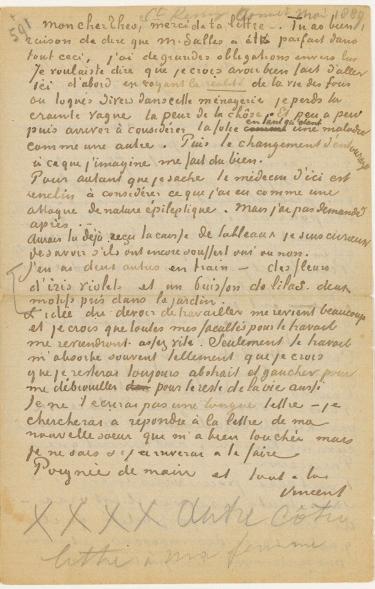 591
St Remy
Mai 1889
mon cher theo, merci de ta lettre — Tu as bien
raison de dire que M. Salles a été parfait dans
tout ceci, j'ai de grandes obligations envers lui
Je voulais te dire que je crois avoir bien fait d'aller
ici d'abord en voyant la réalité de la vie des fous
ou toqués divers dans cette ménagerie je perds la
crainte vague la peur de la chose. Et peu à peu
puis arriver à considérer la folie en tant qu'étant une maladie
comme une autre. Puis le changement d'entourage
à ce que j'imagine me fait du bien.
Pour autant que je sache le médecin d'ici est
enclin à considérer ce que j'ai eu comme une
attaque de nature épileptique. Mais j'ai pas demandé
après
Aurais tu déjà reçu la caisse de tableaux je suis curieux
de savoir s'ils ont encore souffert oui ou non.
J'en ai deux autres en train — des fleurs
d'iris violets et un buisson de lilas. deux
motifs pris dans le jardin.
L'idée du devoir de travailler me revient beaucoup
et je crois que toutes mes facultés pour le travail
me reviendront assez vite. Seulement le travail
m'absorbe souvent tellement que je crois
que je resterai toujours abstrait et gaucher pour
me débrouiller pour le reste de la vie aussi
Je ne t'ecrirai pas une longue lettre — je
chercherai a répondre à la lettre de ma
nouvelle soeur qui m'a bien touché mais
je ne sais si j'arriverai à le faire
Poignée de main et tout à toi
Vincent
XXXX autre côté
lettre à ma femme